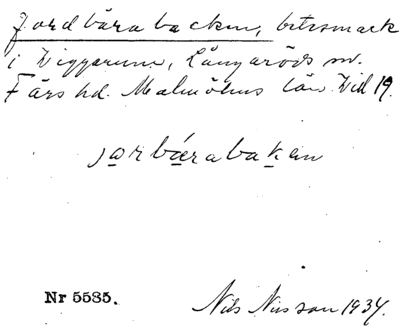 Jordbärabacken, betesmark
i Viggarum, Långaröds sn.
Färs hd. Malmöhus län. Vid 19.
jo̲rbæ̲raba̲k̲en
Nr 5585.
Nils Nilsson 1934.